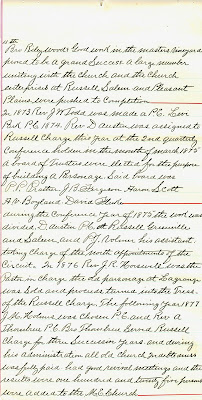 11th
Rev Ripley Woods Good work in the masters vineyard
proved to be a grand Success a large number
uniting with the Church and the Church
enterprises at Russell Salem and Pleasant
Plains were pushed to Completion
In 1873 Rev J W Todd was made a P.E. Lew
P.E. 1874. Rev D Austin was assigned to
Russell Charge this year at the 2nd quarterly
Conference holden in the month of March 1875
a board of Trustees were elected for the purpose
of building a Parsonage. Said board was
P.P. J.B. Ferguson Haven Scott
H.P. Boyland David
during the Conference Year of 1875 the work was
divided, Austin P.C. at Russell Grenville
and Salem and P.J. his assistant
taking Charge of the fourth appointments of the
Circuit. In 1876 Rev J.R. was the
Pastor in charge the old parsonage at Lagrange
was sold and proceeds turned into the Treas.
of the Russell Charge. The following year 1877
J.W. was chosen P.E. and Rev A
Thornbru P.C. Bro Thornbru Served Russell
Charge for three Successive Years and during
his administration all old Church Indebtedness
was fully paid had good revival meetings and the
results were one hundred and twenty five persons
were added to the M.E. Church